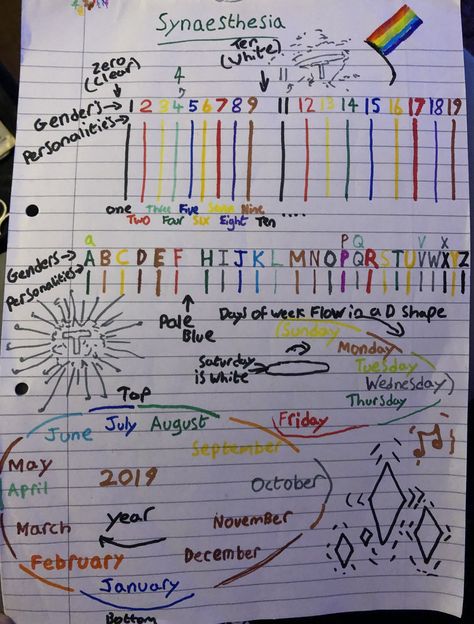 Synaesthesia
ZERO (Clear)
4
Ten (White)
11
T
Genders → 1 2 3 4 5 6 7 8 9 11 12 13 14 15 16 17 18 19
Personalities →
one Three Five Seven Nine ....
Two Four Six Eight Ten
a P Q V X
Genders → A B C D E F H I J K L M N O P Q R S T U V W X Y Z
Personalities →
Pale Blue
Days of week Flow in a D Shape
Sunday
Monday
Tuesday
Wednesday
Thursday
Friday
Saturday is White
T
Top
June July August
September
May
April
2019
October
March
year
November
February
December
January
Bottom